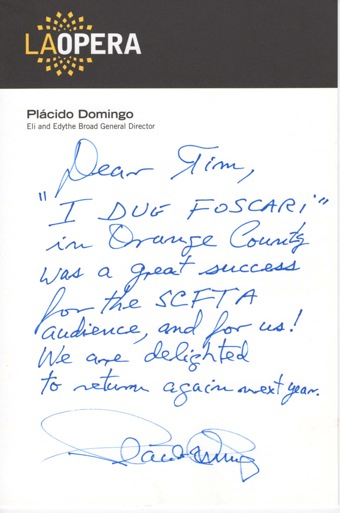 LAOPERA
Plácido Domingo
Eli and Edythe Broad General Director
Dear Tim,
"I DUE FOSCARI"
in Orange County
was a great success
for the SCFTA
audience, and for us!
We are delighted
to return again next year.
Plácido Domingo